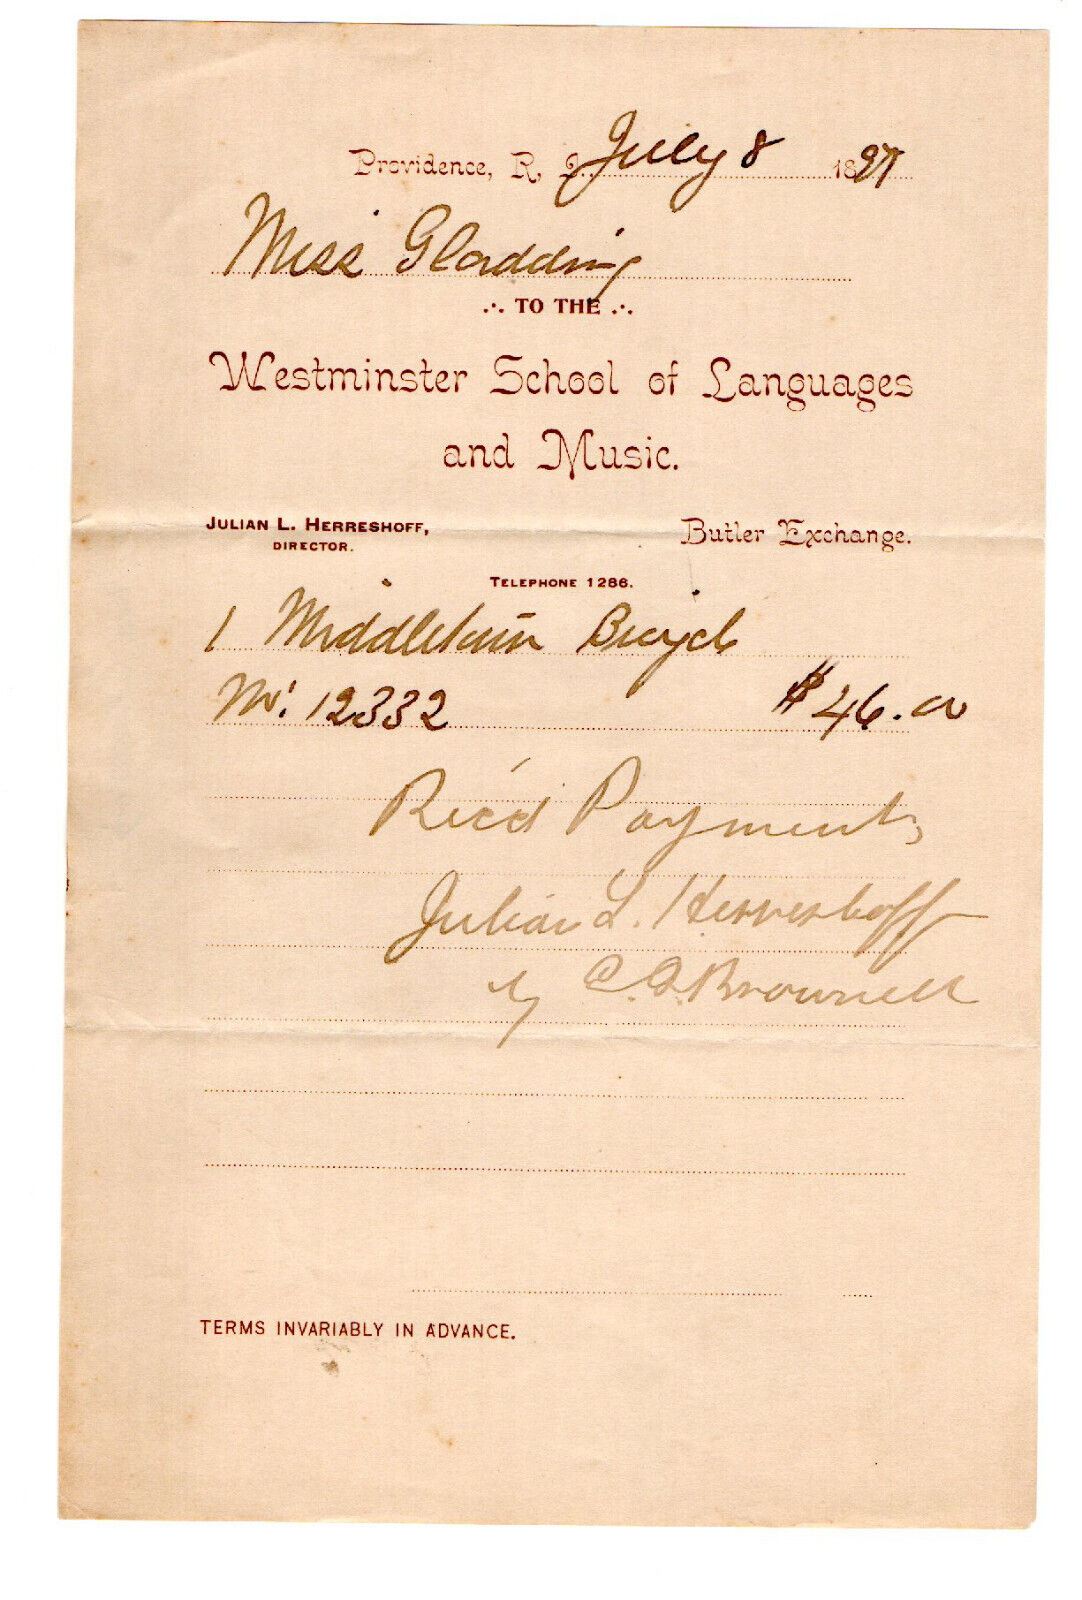 Providence, R. I. July 8 1897
Miss Gladding
.·. TO THE .·.
Westminster School of Languages
and Music.
JULIAN L. HERRESHOFF,
DIRECTOR.
Butler Exchange.
TELEPHONE 1286.
1 Middletown Bicycle
Nr. 12332 $46.00
Rec'd Payment,
Julian L. Herreshoff
by C. D. Brownell
TERMS INVARIABLY IN ADVANCE.